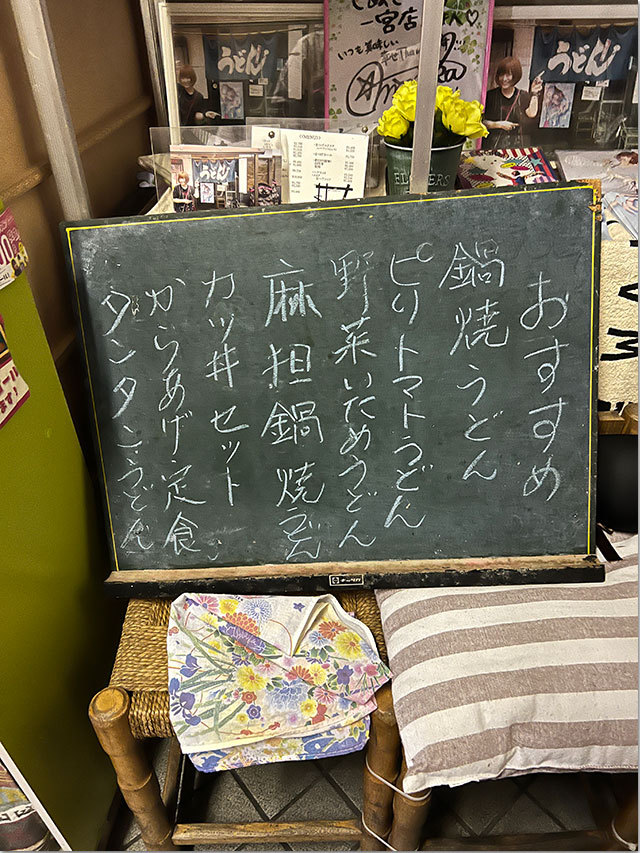 おすすめ
鍋焼うどん
ピリトマトうどん
野菜いためうどん
麻担鍋焼うどん
カツ丼セット
からあげ定食
タンタンうどん
うどん
うどん
うどん
一宮店
いつも美味しい